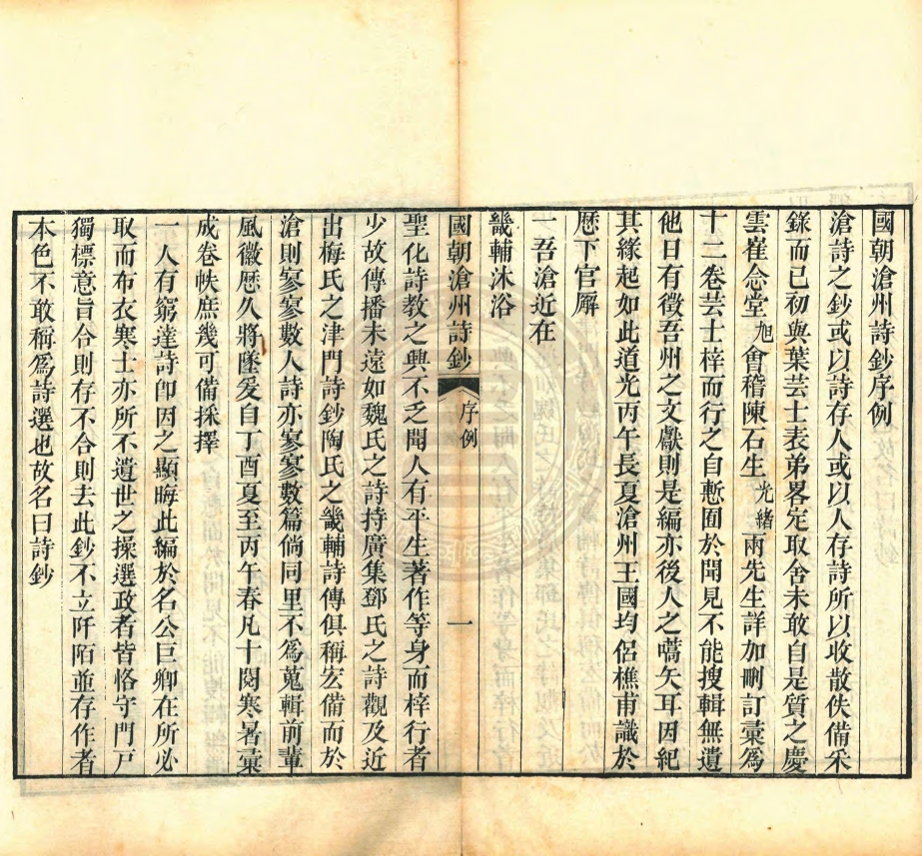 國朝滄州詩鈔序例
滄詩之鈔或以詩存人或以人存詩所以收散佚備采
錄而已初與葉芸士表弟畧定取舍未敢自是質之慶
雲崔念堂旭會稽陳石生光緒兩先生詳加刪訂彙爲
十二卷芸士梓而行之自慙囿於聞見不能搜輯無遺
他日有徵吾州之文獻則是編亦後人之嚆矢耳因紀
其緣起如此道光丙午長夏滄州王國均侶樵甫識於
歷下官廨
一吾滄近在
畿輔沐浴
國朝滄州詩鈔 序例 一
聖化詩教之興不乏聞人有平生著作等身而梓行者
少故傳播未遠如魏氏之詩持廣集鄧氏之詩觀及近
出梅氏之津門詩鈔陶氏之畿輔詩傳俱稱宏備而於
滄則寥寥數人詩亦寥寥數篇倘同里不爲蒐輯前輩
風徽歷久將墜爰自丁酉夏至丙午春凡十閱寒暑彙
成卷帙庶幾可備採擇
一人有窮達詩卽因之顯晦此編於名公巨卿在所必
取而布衣寒士亦所不遺世之操選政者皆恪守門戸
獨標意旨合則存不合則去此鈔不立阡陌並存作者
本色不敢稱爲詩選也故名曰詩鈔